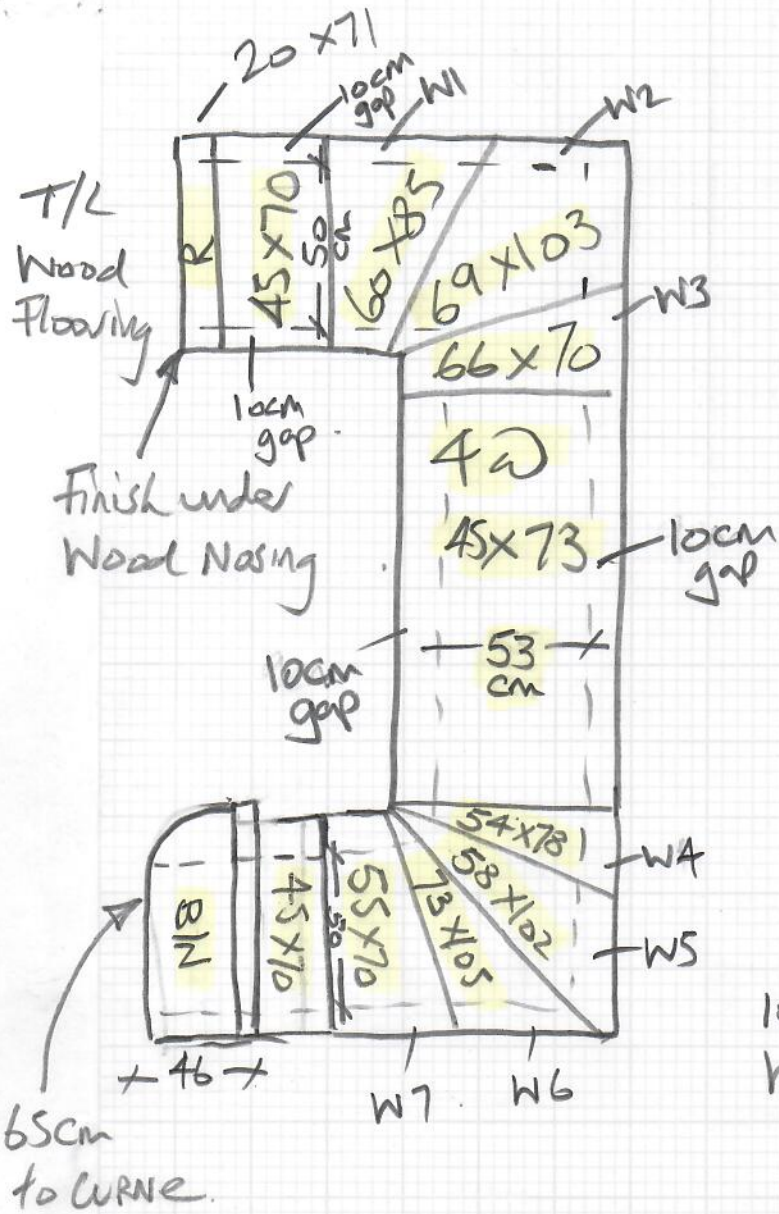 20 x 71
10cm
gap
W1
W2
T/L
Wood
Flooring
R
45 x 70
50
cm
60 x 85
69 x 103
W3
66 x 70
10cm
gap
Finish under
Wood Nosing
4@
45 x 73
10cm
gap
10cm
gap
53
cm
54 x 78
W4
58 x 102
73 x 105
W5
55 x 70
50
45 x 70
B/N
46
W7
W6
65cm
to CURNE.